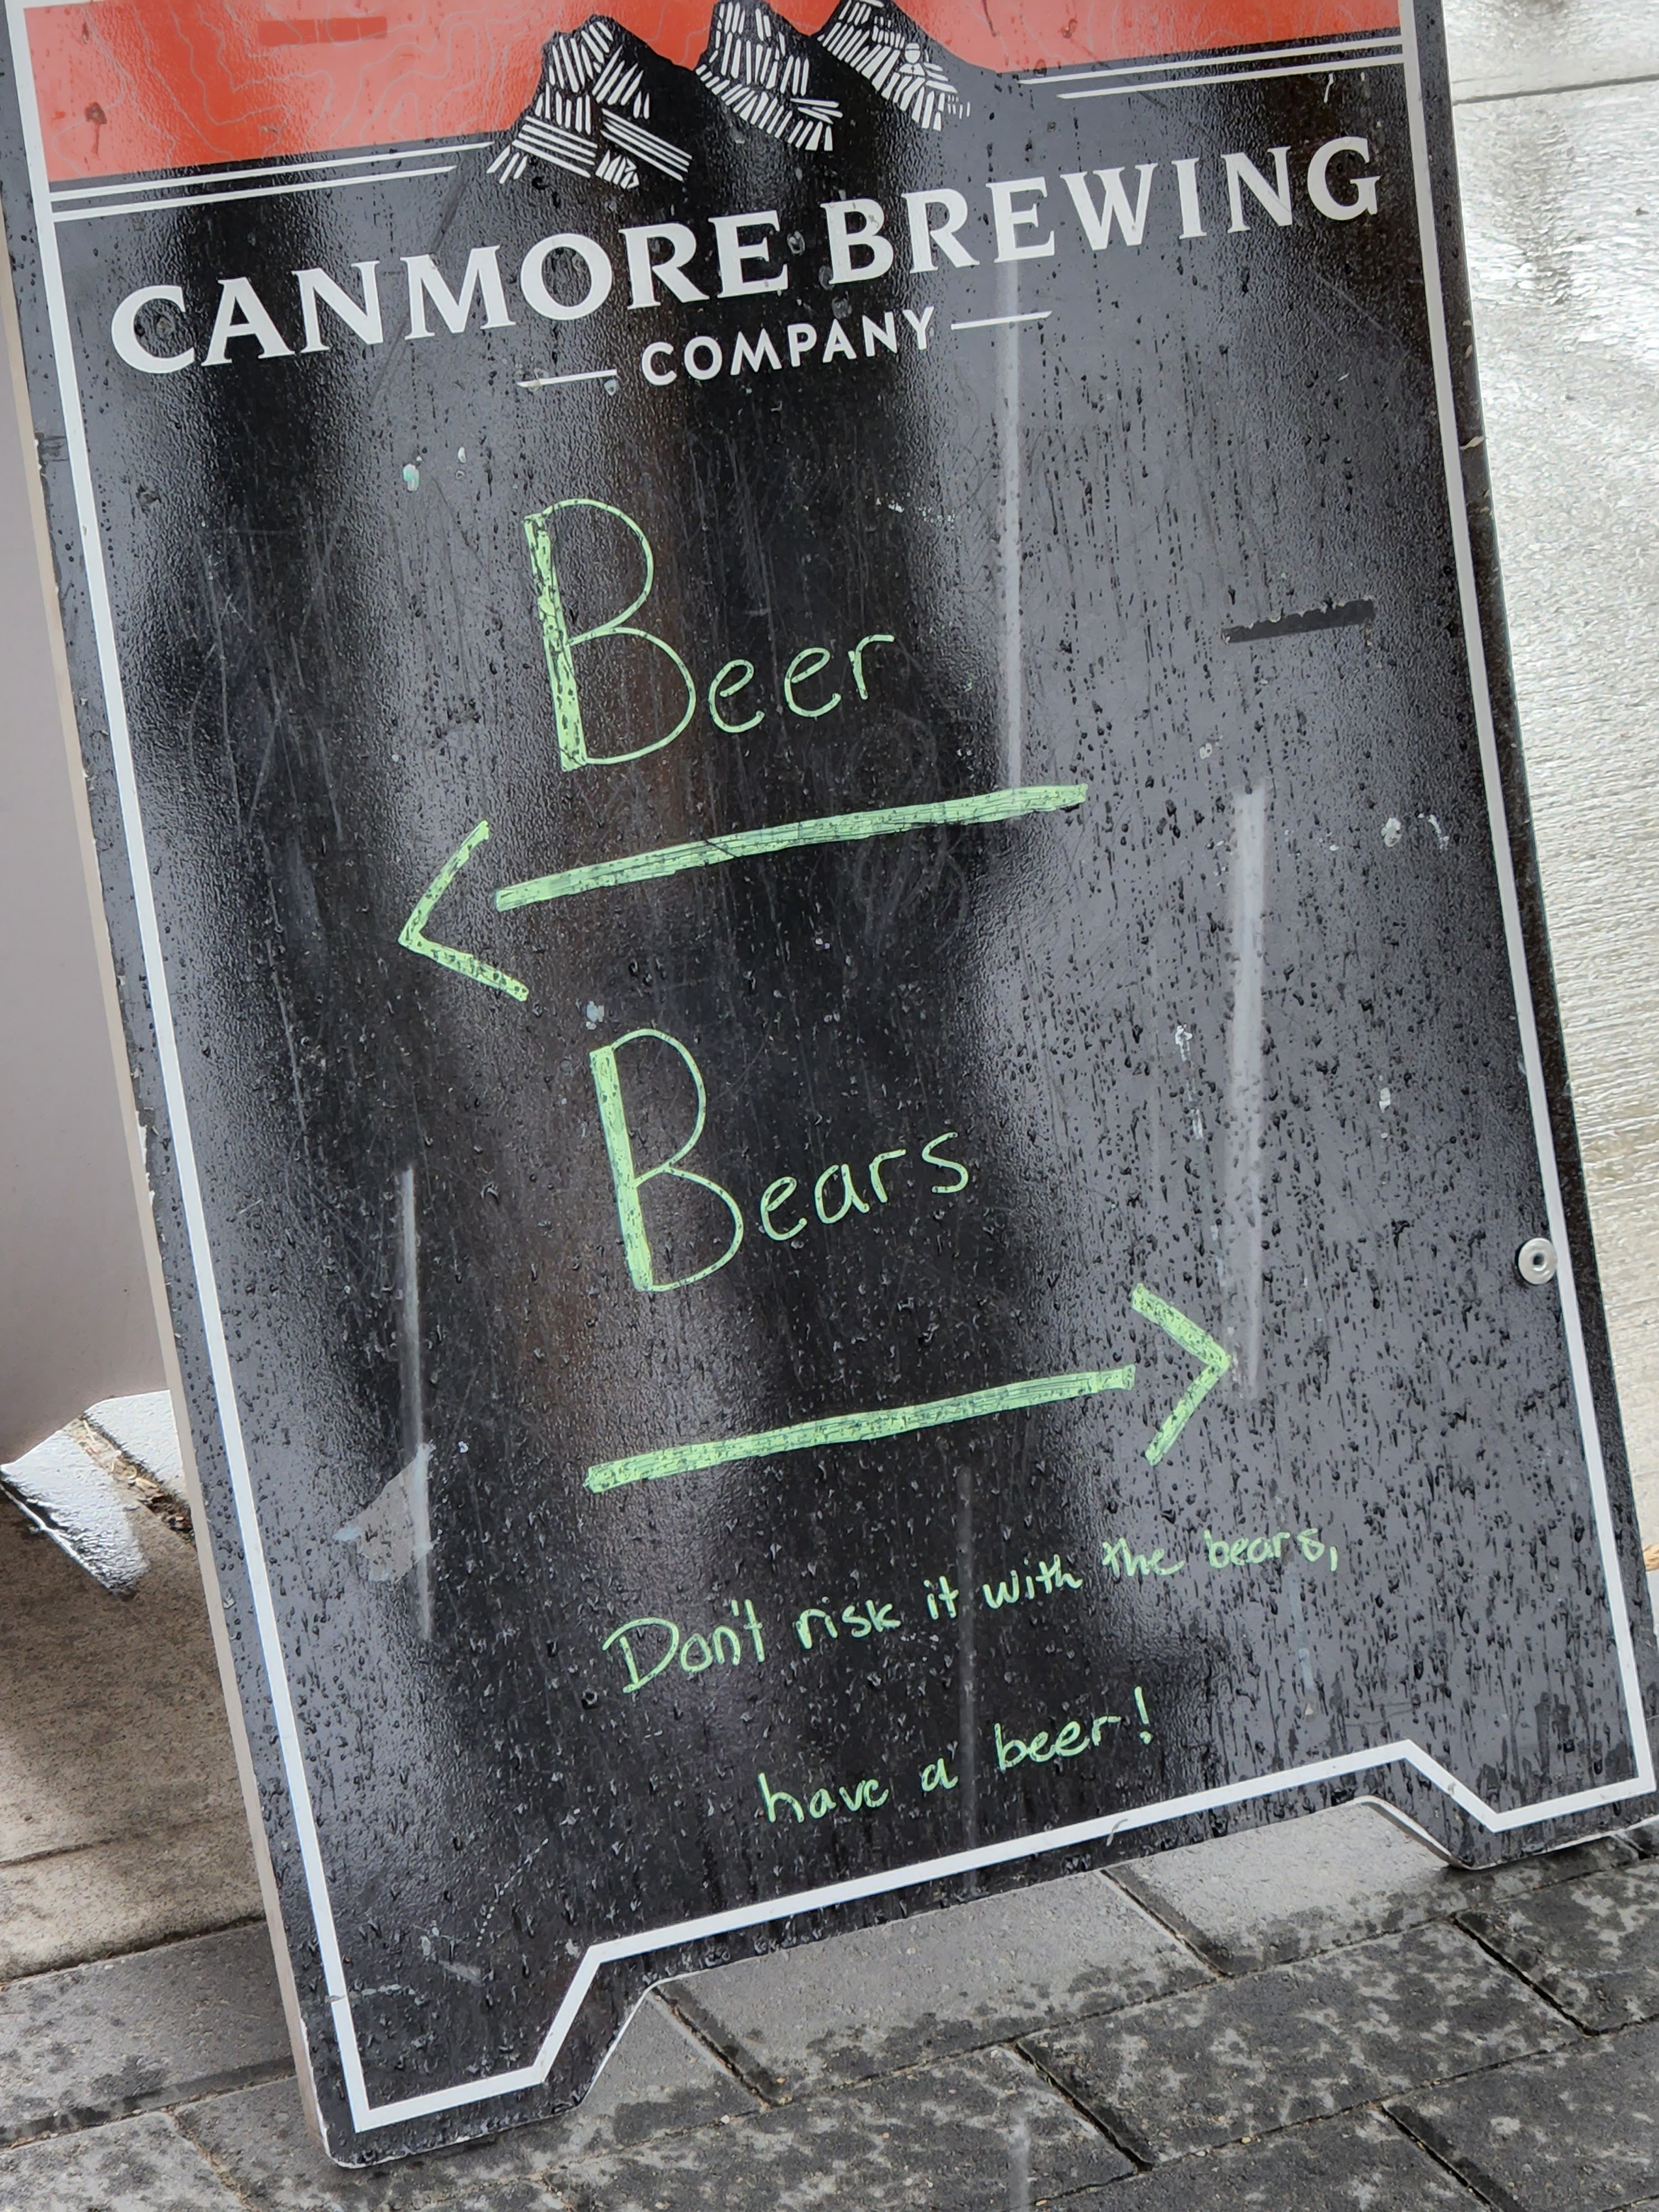 CANMORE BREWING
COMPANY
Beer
Bears
Don't risk it with the bears,
have a beer!